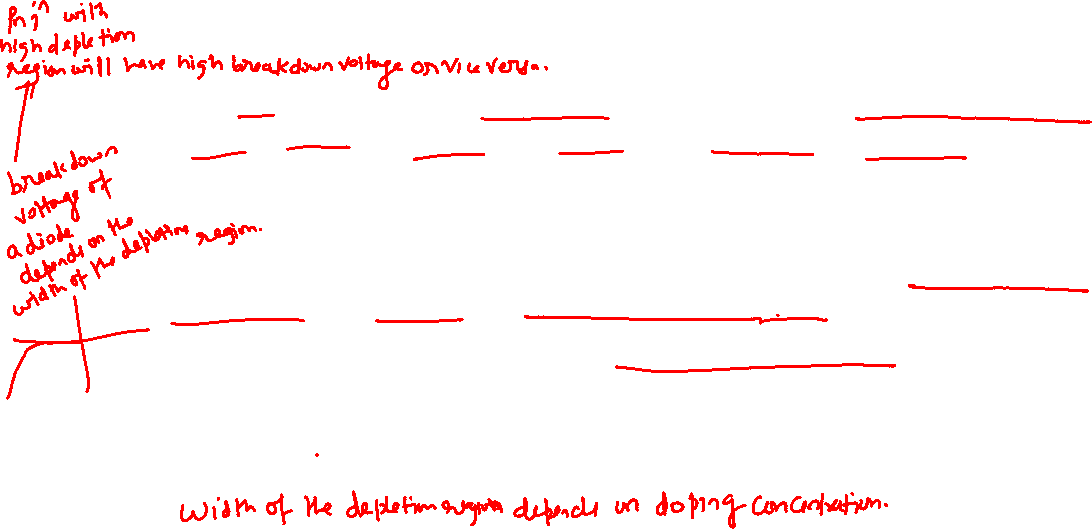 Pn jn with
high depletion
region will have high breakdown voltage or vice versa.
breakdown
voltage of
a diode
depends on the
width of the depletion region.
width of the depletion region depends on doping concentration.